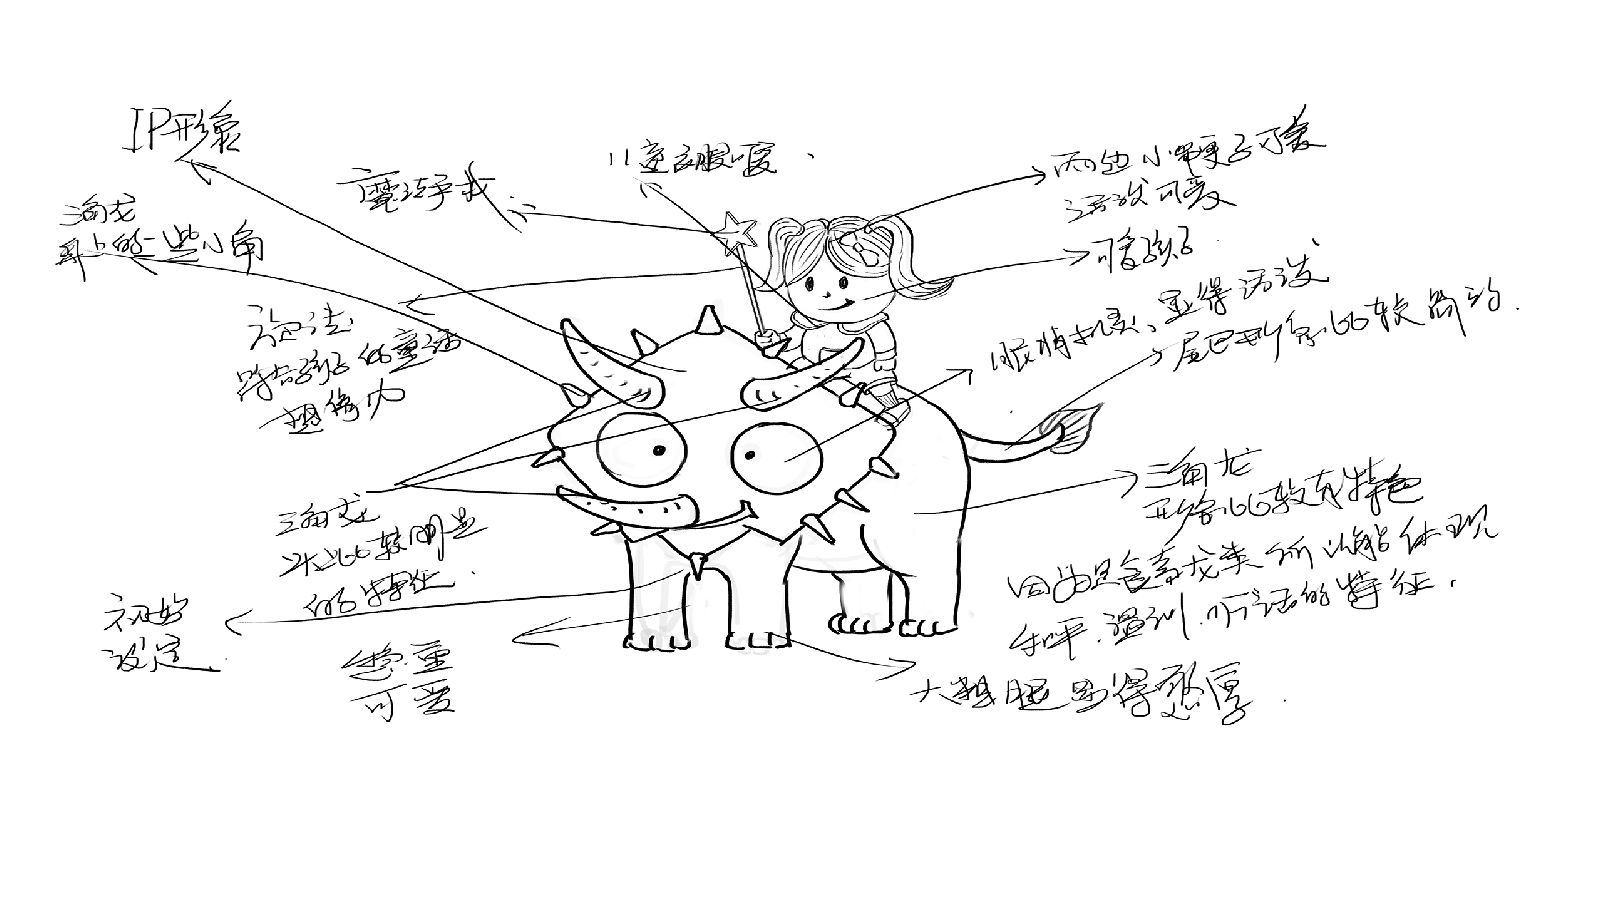 IP形象
三角龙
耳上的一些小角
魔法
儿童
两边小辫子可爱
活泼可爱
可爱孩子
施法
符合孩子的童话
想像力
眼睛 显得活泼
尾巴形象比较简约.
三角龙
形象比较有特色
因为是食草龙类所以能体现
和平.温训.听话的特征.
三角龙
比较明显
的特征.
初始
设定.
稳重
可爱
大粗腿显得憨厚.